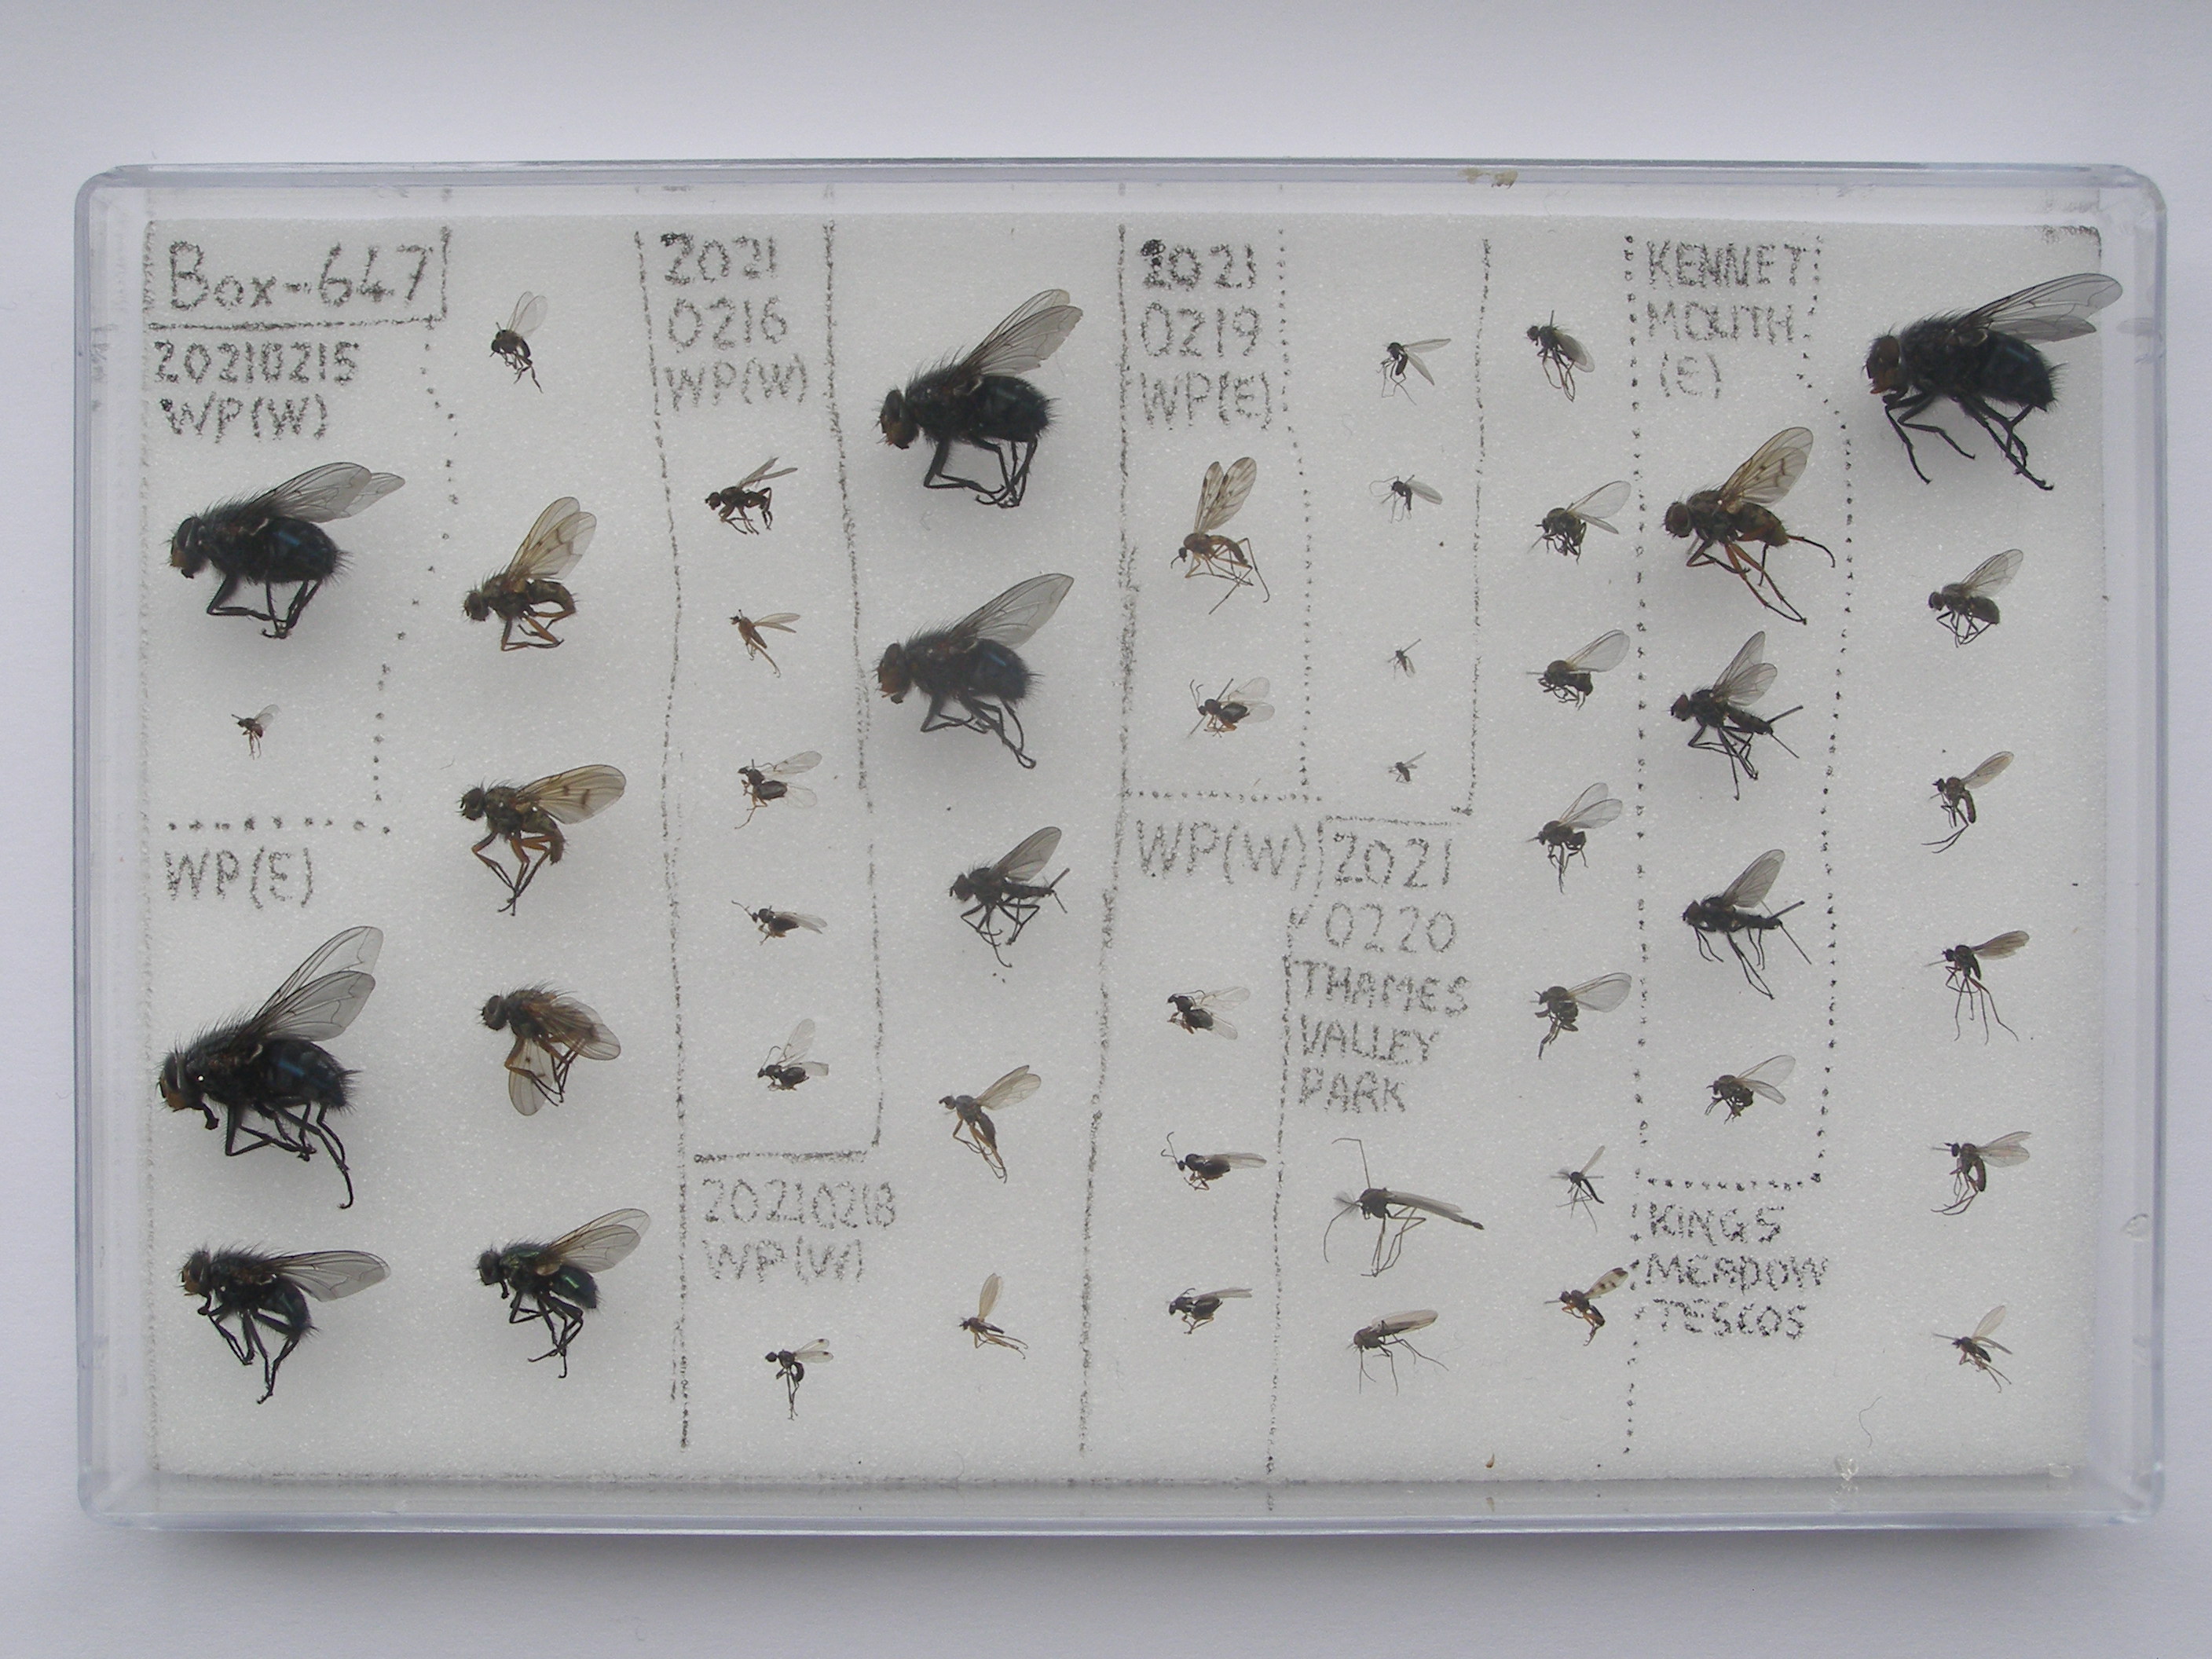 Box-647
20210215
WP(W)
WP(E)
2021
0216
WP(W)
20210218
WP(W)
2021
0219
WP(E)
WP(W)
2021
0220
THAMES
VALLEY
PARK
KENNET
MOUTH
(E)
KINGS
MEADOW
TESCOS